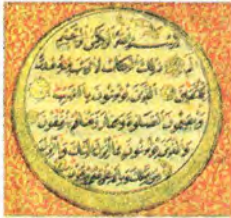 بسم الله الرحمن الرحيم
الم ذلك الكتاب لا ريب فيه هدى
للمتقين الذين يؤمنون بالغيب
ويقيمون الصلوة ومما رزقناهم ينفقون
والذين يؤمنون بما أنزل إليك وما أنزل
من قبلك وبالآخرة هم يوقنون